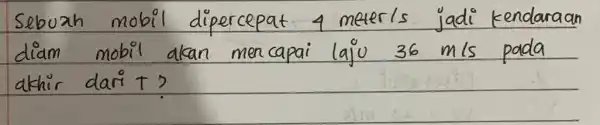 Sebuah mobil dipercepat 4 meter/s jadi kendaraan
diam mobil akan mencapai laju 36 m/s pada
akhir dari T ?